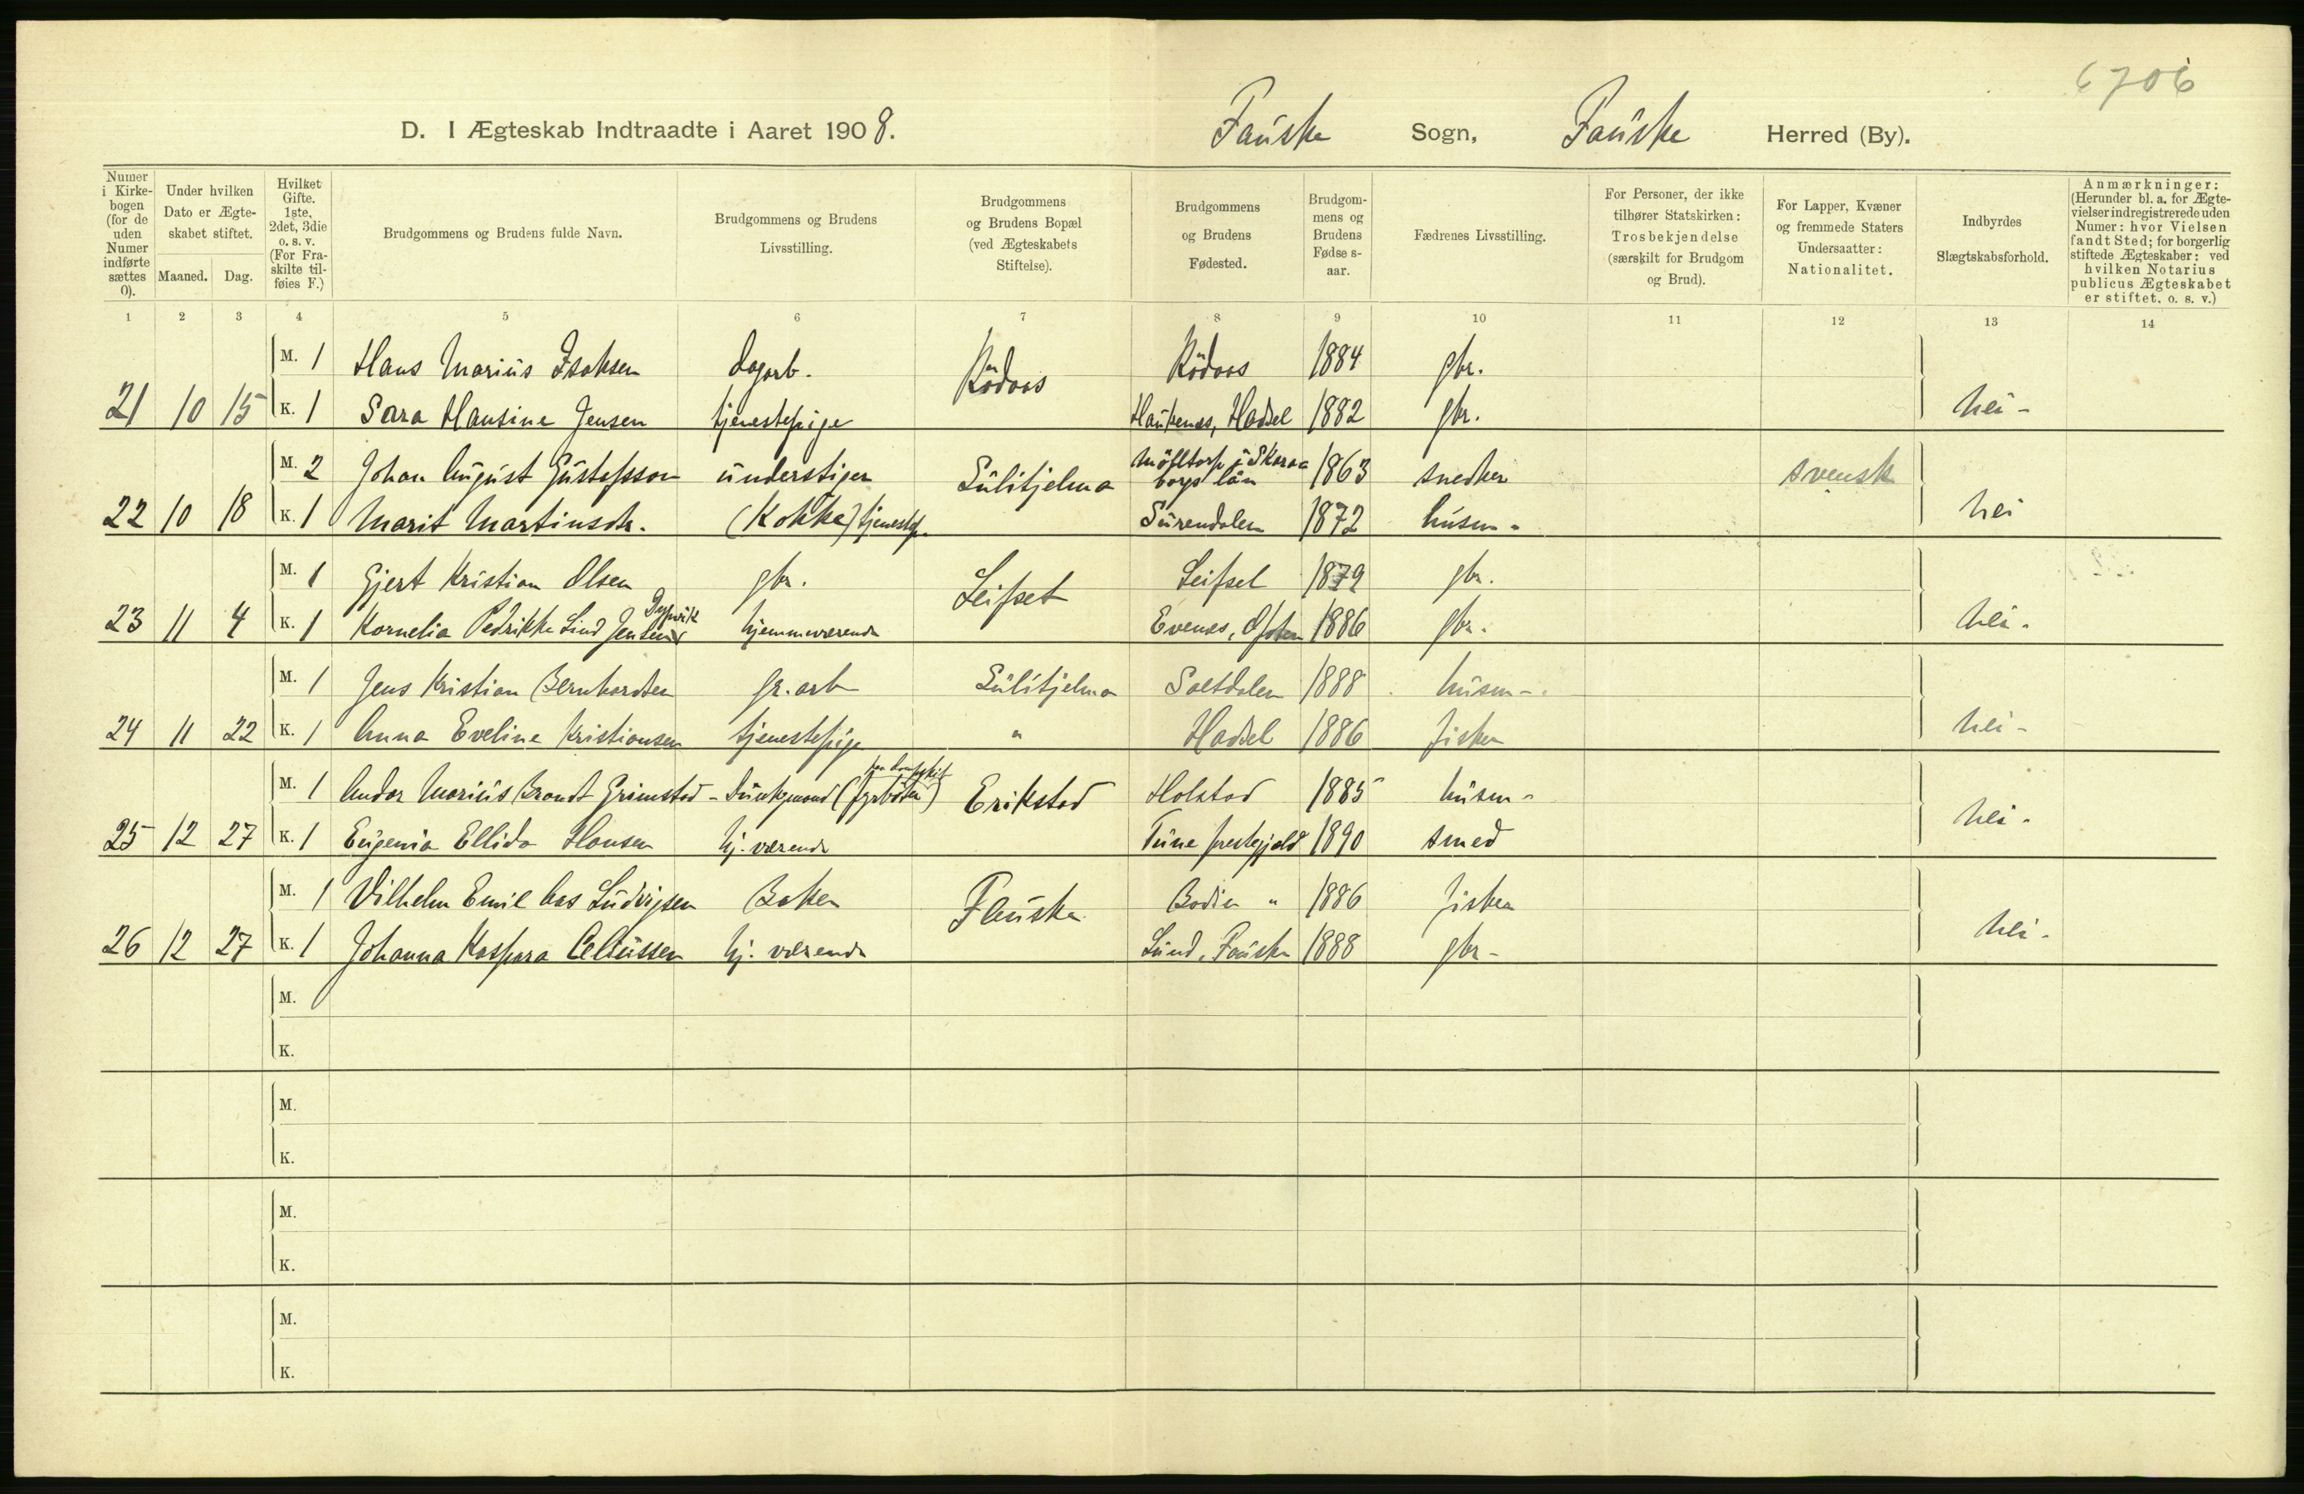 6706
D. I Ægteskab Indtraadte i Aaret 1908. Fauske Sogn, Fauske Herred (By).
Numer i Kirkebogen (for de uden Numer indførte sættes 0).
Under hvilken Dato er Ægteskabet stiftet. Maaned. Dag.
Hvilket Gifte. 1ste, 2det, 3die o. s. v. (For Fraskilte tilføies F.)
Brudgommens og Brudens fulde Navn.
Brudgommens og Brudens Livsstilling.
Brudgommens og Brudens Bopæl (ved Ægteskabets Stiftelse).
Brudgommens og Brudens Fødested.
Brudgommens og Brudens Fødselsaar.
Fædrenes Livsstilling.
For Personer, der ikke tilhører Statskirken: Trosbekjendelse (særskilt for Brudgom og Brud).
For Lapper, Kvæner og fremmede Staters Undersaatter: Nationalitet.
Indbyrdes Slægtskabsforhold.
Anmærkninger: (Herunder bl. a. for Ægtevielser indregistrerede uden Numer: hvor Vielsen fandt Sted; for borgerlig stiftede Ægteskaber: ved hvilken Notarius publicus Ægteskabet er stiftet. o. s. v.)
1 2 3 4 5 6 7 8 9 10 11 12 13 14
M. 1 Hans Marius Isaksen dagarb. Rödøos Rödøos 1884 gbr.
21 10 15 K. 1 Sara Hansine Jensen tjenestepige Haukenes, Hadsel 1882 gbr. nei -
M. 2 Johan August Gustafsson understiger Sulitjelma i Skaraborgs län 1863 snedker svensk
22 10 18 K. 1 Marit Martinsdr. (Kokke) tjenestep. Surendalen 1872 husm - nei
M. 1 Gjert Kristian Olsen gbr. Leifset Leifset 1879 gbr.
23 11 4 K. 1 Kornelia Pedrikke Lind Jensen Dypvik hjemmeværende Evenes, Ofoten 1886 gbr. nei -
M. 1 Jens Kristian Bernhardsen gr. arb Sulitjelma Saltdalen 1888 husm -
24 11 22 K. 1 Anna Eveline Kristiansen tjenestepige " Hadsel 1886 fisker nei -
M. 1 Andor Marius Brandt Grimstad - (fyrböter) Erikstad Holstad 1885 husm -
25 12 27 K. 1 Eugenia Ellida Hansen hj. værende Tune prestegjeld 1890 smed nei -
M. 1 Vilhelm Emil Aas Ludvigsen Baker Fauske Bodin " 1886 fisker
26 12 27 K. 1 Johanna Kaspara Celiussen hj. værende Lund, Fauske 1888 gbr - nei -
M.
K.
M.
K.
M.
K.
M.
K.